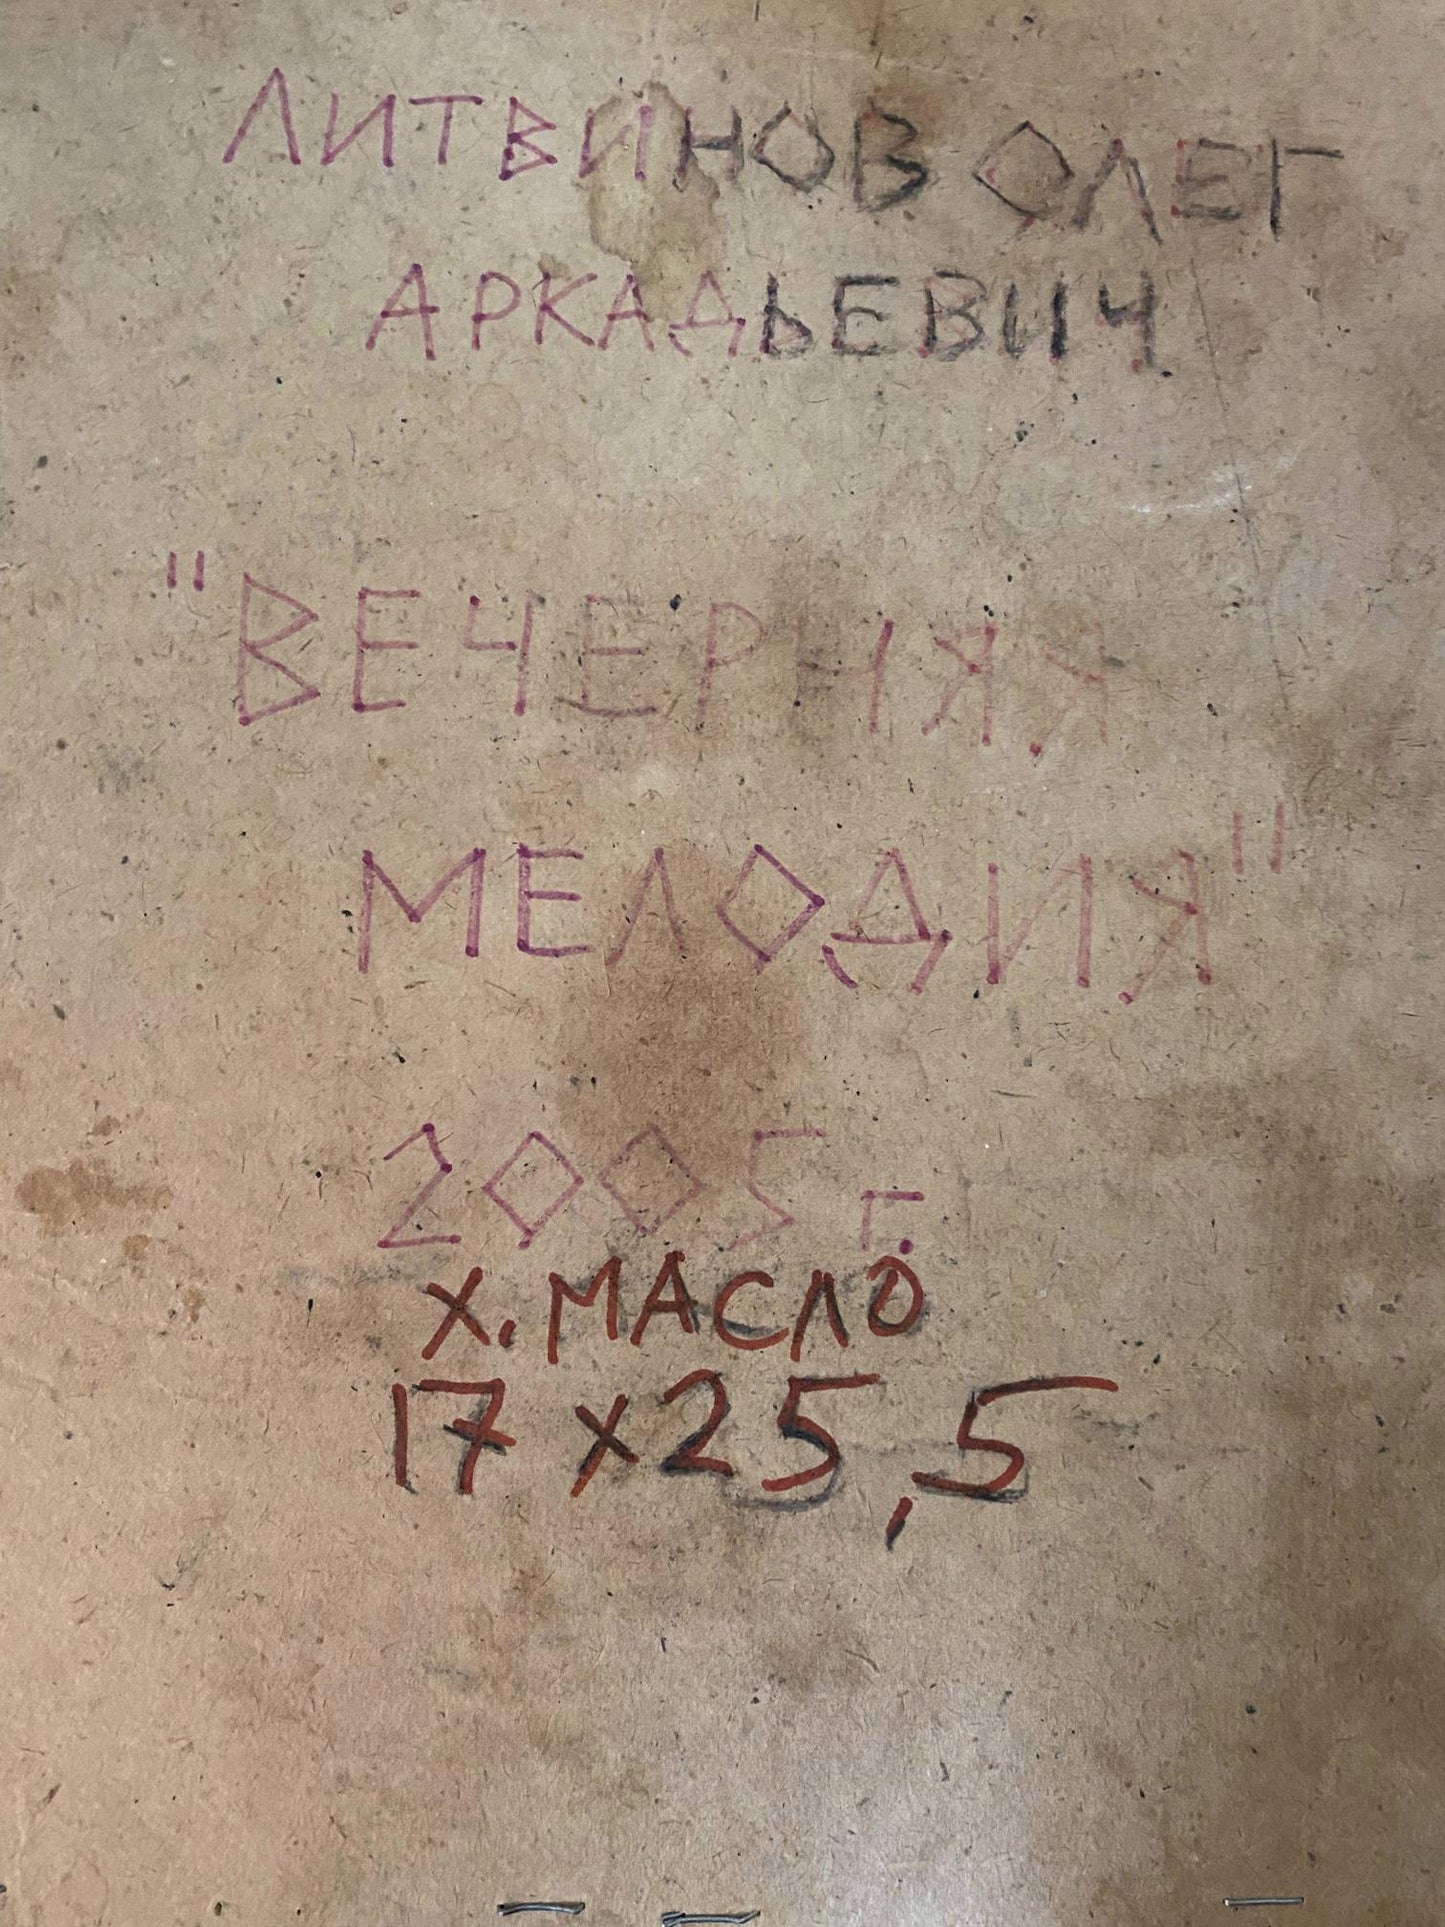 ЛИТВИНОВ ОЛЕГ
АРКАДЬЕВИЧ
"ВЕЧЕРНЯЯ
МЕЛОДИЯ"
2005 г.
Х. МАСЛО
17 х 25,5